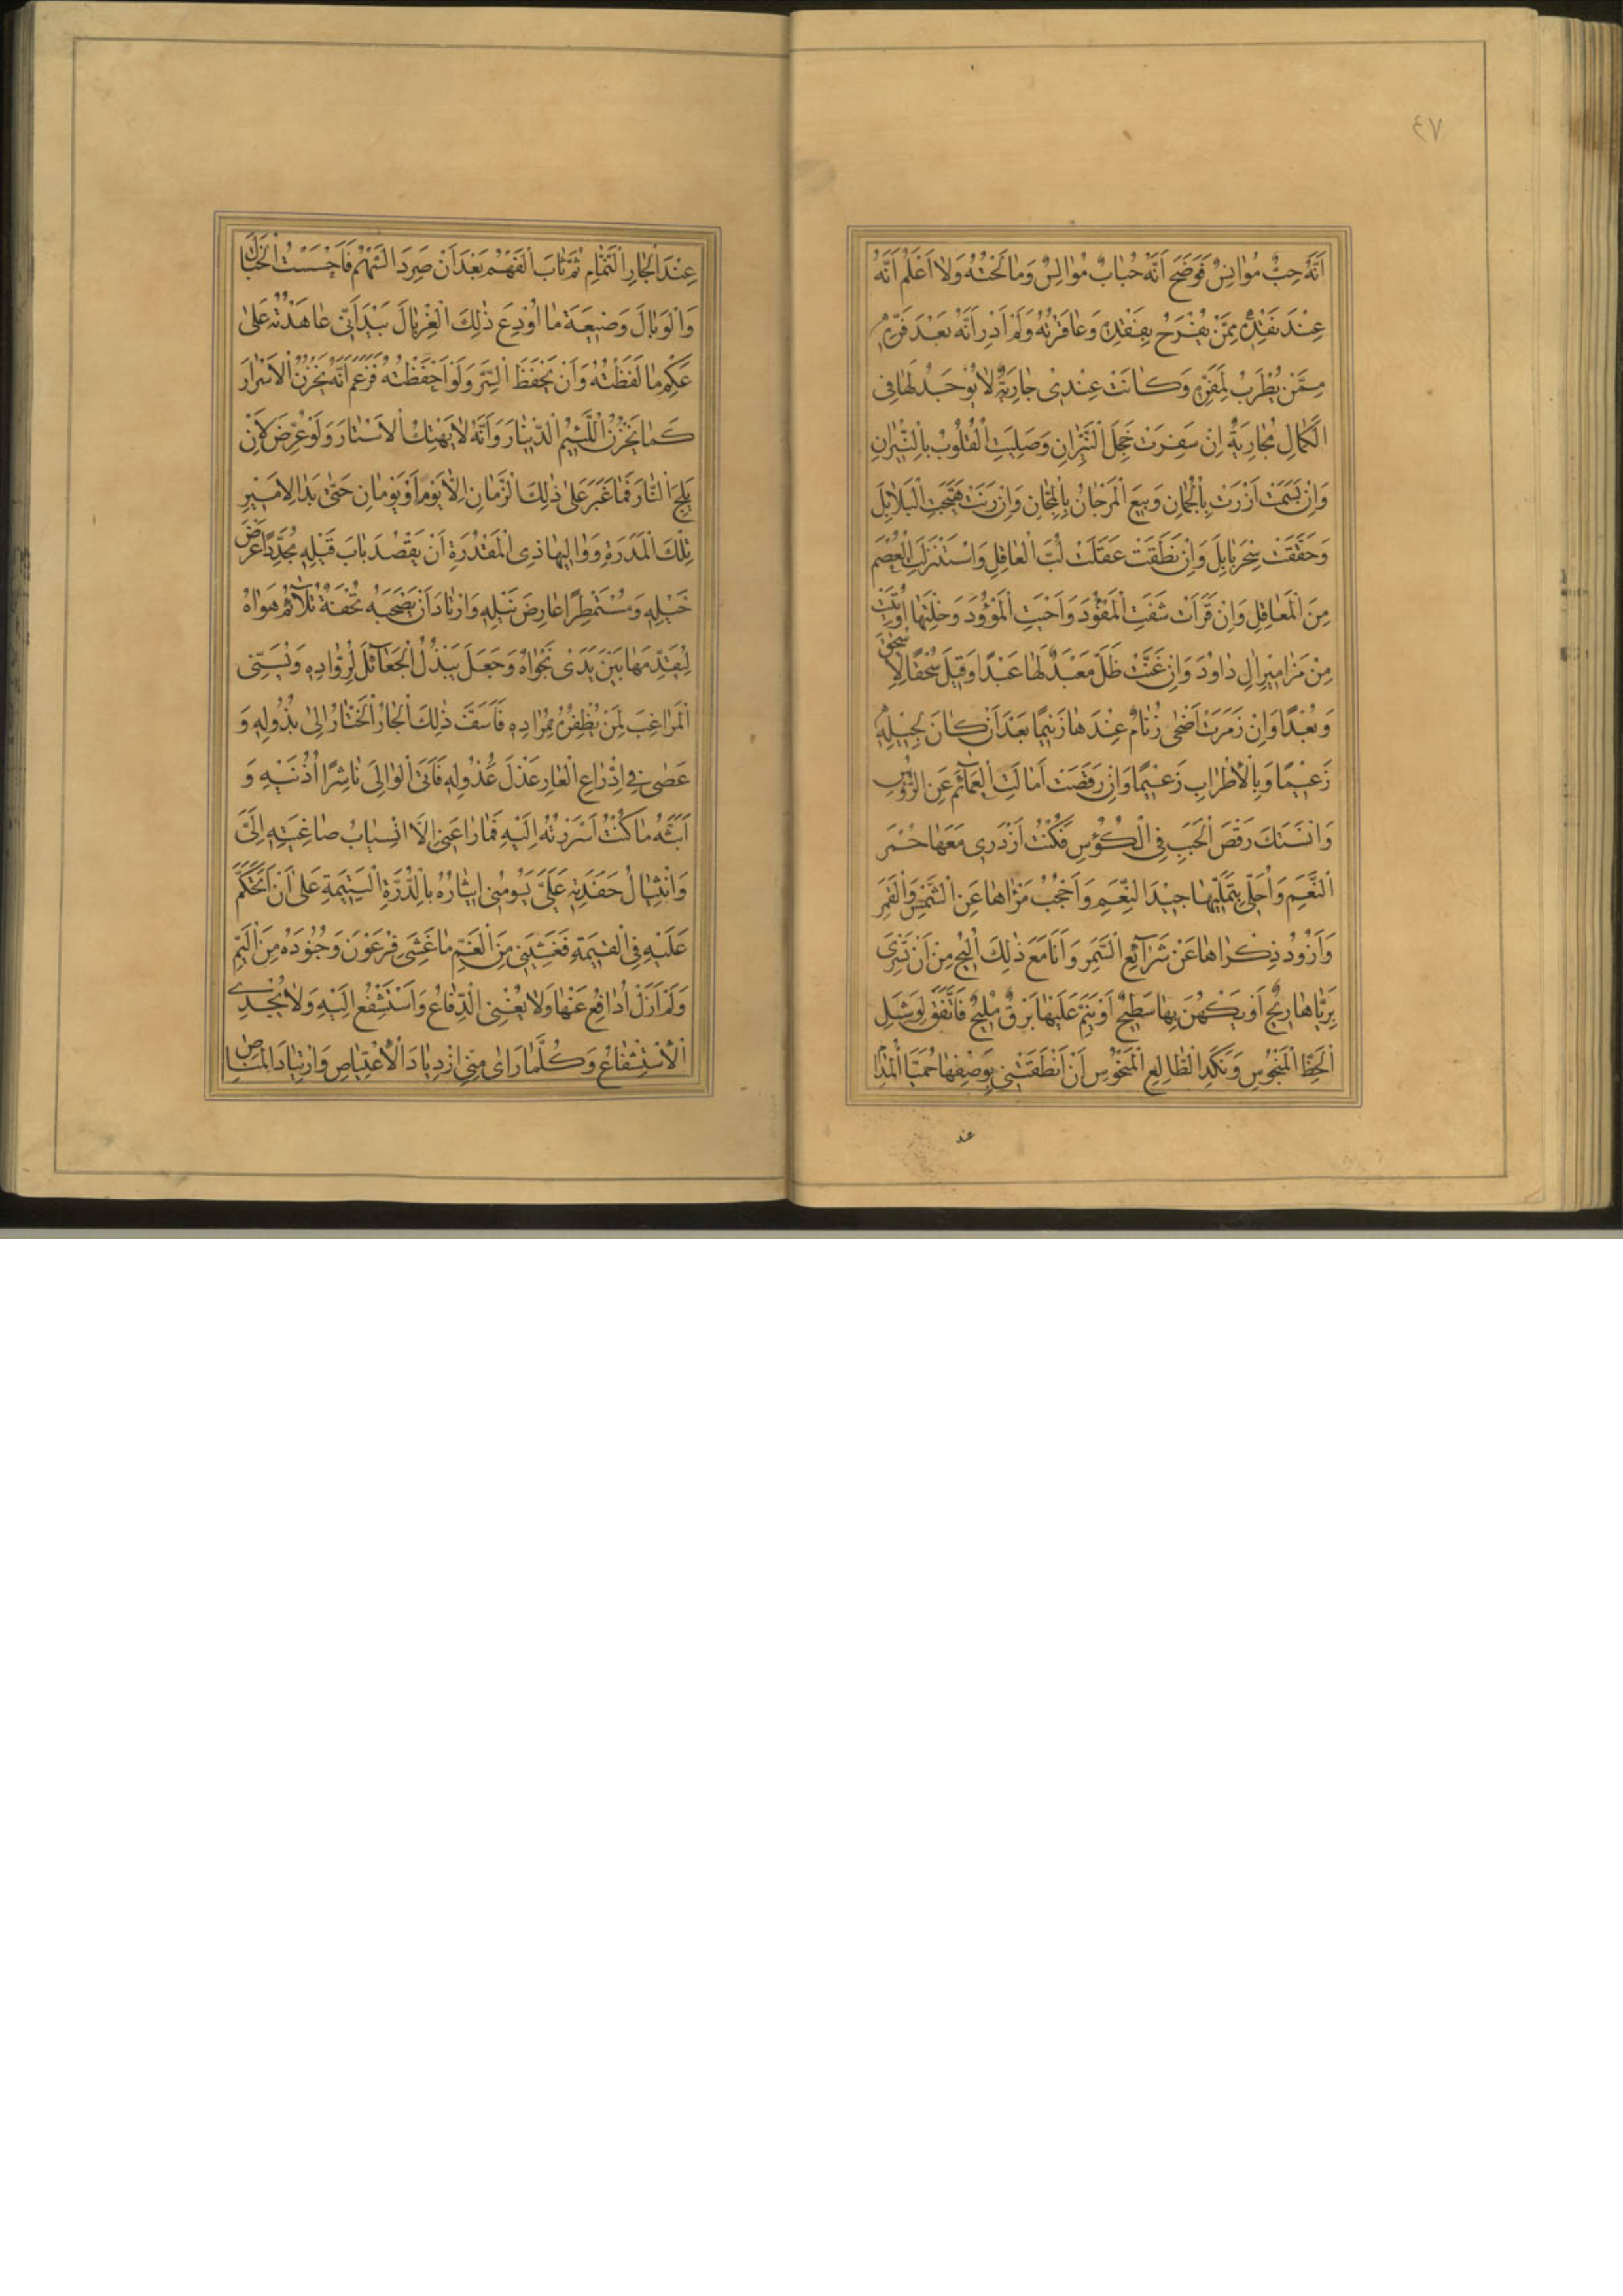 ٤٧
اَنَّهُ حِبٌّ مُوَانِسٌ فَوَضَحَ اَنَّهُ حُبَابٌ مُوَالِسٌ وَمَا لَحْتُهُ وَلَا اَعْلَمُ اَنَّهُ
عِنْدَ نَقْدِهِ مِمَّنْ يُفْرَحُ بِفَقْدِهِ وَعَاقَرْتُهُ وَلَمْ اَدْرِ اَنَّهُ بَعْدَ فَرِّهِ
مِمَّنْ يُطْرَبُ لِمَفَرِّهِ وَكَانَتْ عِنْدِى جَارِيَةٌ لَا يُوجَدُ لَهَا فِى
الْكَمَالِ مُجَارِيَةٌ اِنْ سَفَرَتْ خَجِلَ النَّيِّرَانِ وَصَلِيَتِ الْقُلُوبُ بِالنِّيرَانِ
وَاِنْ بَسَمَتْ اَزْرَتْ بِالْجُمَانِ وَبِيعَ الْمَرْجَانُ بِالْمَجَّانِ وَاِنْ رَنَتْ هَيَّجَتِ الْبَلَابِلَ
وَحَقَّقَتْ سِحْرَ بَابِلَ وَاِنْ نَطَقَتْ عَقَلَتْ لُبَّ الْعَاقِلِ وَاسْتَنْزَلَتِ الْعُصْمَ
مِنَ الْمَعَاقِلِ وَاِنْ قَرَاَتْ شَفَتِ الْمَفْؤُدَ وَاَحْيَتِ الْمَوْؤُدَ وَخِلْتَهَا اُوتِيَتْ
مِنْ مَزَامِيرِ اٰلِ دَاوُدَ وَاِنْ غَنَّتْ ظَلَّ مَعْبَدٌ لَهَا عَبْدًا وَقِيلَ سُحْقًا لِاِسْحٰقَ
وَبُعْدًا وَاِنْ زَمَرَتْ اَضْحٰى زُنَامٌ عِنْدَهَا زَنِيمًا بَعْدَ اَنْ كَانَ لِجِيلِهِ
زَعِيمًا وَبِالْاِطْرَابِ زَعِيمًا وَاِنْ رَقَصَتْ اَمَالَتِ الْعَمَآئِمَ عَنِ الرُّؤُسِ
وَاَنْسَتْكَ رَقْصَ الْحَبَبِ فِى الْكُؤُسِ فَكُنْتُ اَزْدَرِى مَعَهَا حُمْرَ
النَّعَمِ وَاُحَلِّى بِتَمَلِّيهَا جِيدَ النِّعَمِ وَاَحْجُبُ مَرْاٰهَا عَنِ الشَّمْسِ وَالْقَمَرِ
وَاَذُودُ ذِكْرَاهَا عَنْ شَرَآئِعِ السَّمَرِ وَاَنَا مَعَ ذٰلِكَ اُلِيحُ مِنْ اَنْ تَسْرِىَ
بِرَيَّاهَا رِيحٌ اَوْ يَكْهُنَ بِهَا سَطِيحٌ اَوْ يَنِمَّ عَلَيْهَا بَرْقٌ مُلِيحٌ فَاتَّفَقَ لِوَشْلِ
الْحَظِّ الْمَنْحُوسِ وَنَكَدِ الطَّالِعِ الْمَنْحُوسِ اَنْ اَنْطَقَتْنِى بِوَصْفِهَا حُمَيَّا الْمُدَامِ
عند
عِنْدَ الْجَارِ النَّمَّامِ ثُمَّ ثَابَ الْفَهْمُ بَعْدَ اَنْ صَرِدَ السَّهْمُ فَاَحْسَسْتُ الْخَبَالَ
وَالْوَبَالَ وَضَيْعَةَ مَا اُودِعَ ذٰلِكَ الْغِرْبَالَ بَيْدَ اَنِّى عَاهَدْتُهُ عَلٰى
عَكْمِ مَا لَفَظْتُهُ وَاَنْ يَحْفَظَ السِّرَّ وَلَوْ اَحْفَظْتُهُ فَزَعَمَ اَنَّهُ يَخْزُنُ الْاَسْرَارَ
كَمَا يَخْزُنُ اللَّئِيمُ الدِّينَارَ وَاَنَّهُ لَا يَهْتِكُ الْاَسْتَارَ وَلَوْ عُرِّضَ لِاَنْ
يَلِجَ النَّارَ فَمَا غَبَرَ عَلٰى ذٰلِكَ الزَّمَانِ اِلَّا يَوْمٌ اَوْ يَوْمَانِ حَتّٰى بَدَا لِاَمِيرِ
تِلْكَ الْمَدَرَةِ وَوَالِيهَا ذِى الْمَقْدُرَةِ اَنْ يَقْصِدَ بَابَ قَيْلِهِ مُجَدِّدًا عَرْضَ
خَيْلِهِ وَمُسْتَمْطِرًا عَارِضَ نَيْلِهِ وَارْتَادَ اَنْ يَصْحَبَهُ تُحْفَةٌ تُلَآئِمُ هَوَاهُ
لِيُقَدِّمَهَا بَيْنَ يَدَىْ نَجْوَاهُ وَجَعَلَ يَبْذُلُ الْجَعَآئِلَ لِرُوَّادِهِ وَيُسَنِّى
الْمَرَاغِبَ لِمَنْ يُظْفِرُهُ بِمُرَادِهِ فَاَسَفَّ ذٰلِكَ الْجَارُ الْخَتَّارُ اِلٰى بُذُولِهِ وَ
عَصٰى فِى ادِّرَاعِ الْعَارِ عَذْلَ عَذُولِهِ فَاَتَى الْوَالِىَ نَاشِرًا اُذُنَيْهِ وَ
اَبَثَّهُ مَا كُنْتُ اَسْرَرْتُهُ اِلَيْهِ فَمَا رَاعَنِى اِلَّا انْسِيَابُ صَاغِيَتِهِ اِلَىَّ
وَانْثِيَالُ حَفَدَتِهِ عَلَىَّ يَسُومُنِى اِيثَارَهُ بِالدُّرَّةِ الْيَتِيمَةِ عَلٰى اَنْ اَتَحَكَّمَ
عَلَيْهِ فِى الْقِيمَةِ فَغَشِيَنِى مِنَ الْغَمِّ مَا غَشِىَ فِرْعَوْنَ وَجُنُودَهُ مِنَ الْيَمِّ
وَلَمْ اَزَلْ اُدَافِعُ عَنْهَا وَلَا يُغْنِى الدِّفَاعُ وَاَسْتَشْفِعُ اِلَيْهِ وَلَا يُجْدِى
الْاِسْتِشْفَاعُ وَكُلَّمَا رَاٰى مِنِّى ازْدِيَادَ الْاِعْتِيَاصِ وَارْتِيَادَ الْمَنَاصِ